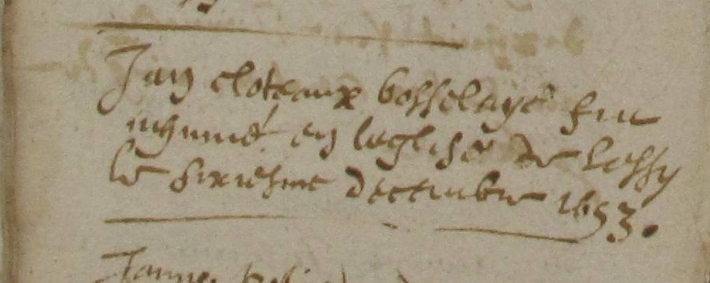 Jan cloteaux bosselaye fut
inhumé en leglise de lessy
le sixiesme decembre 1653.
Janne